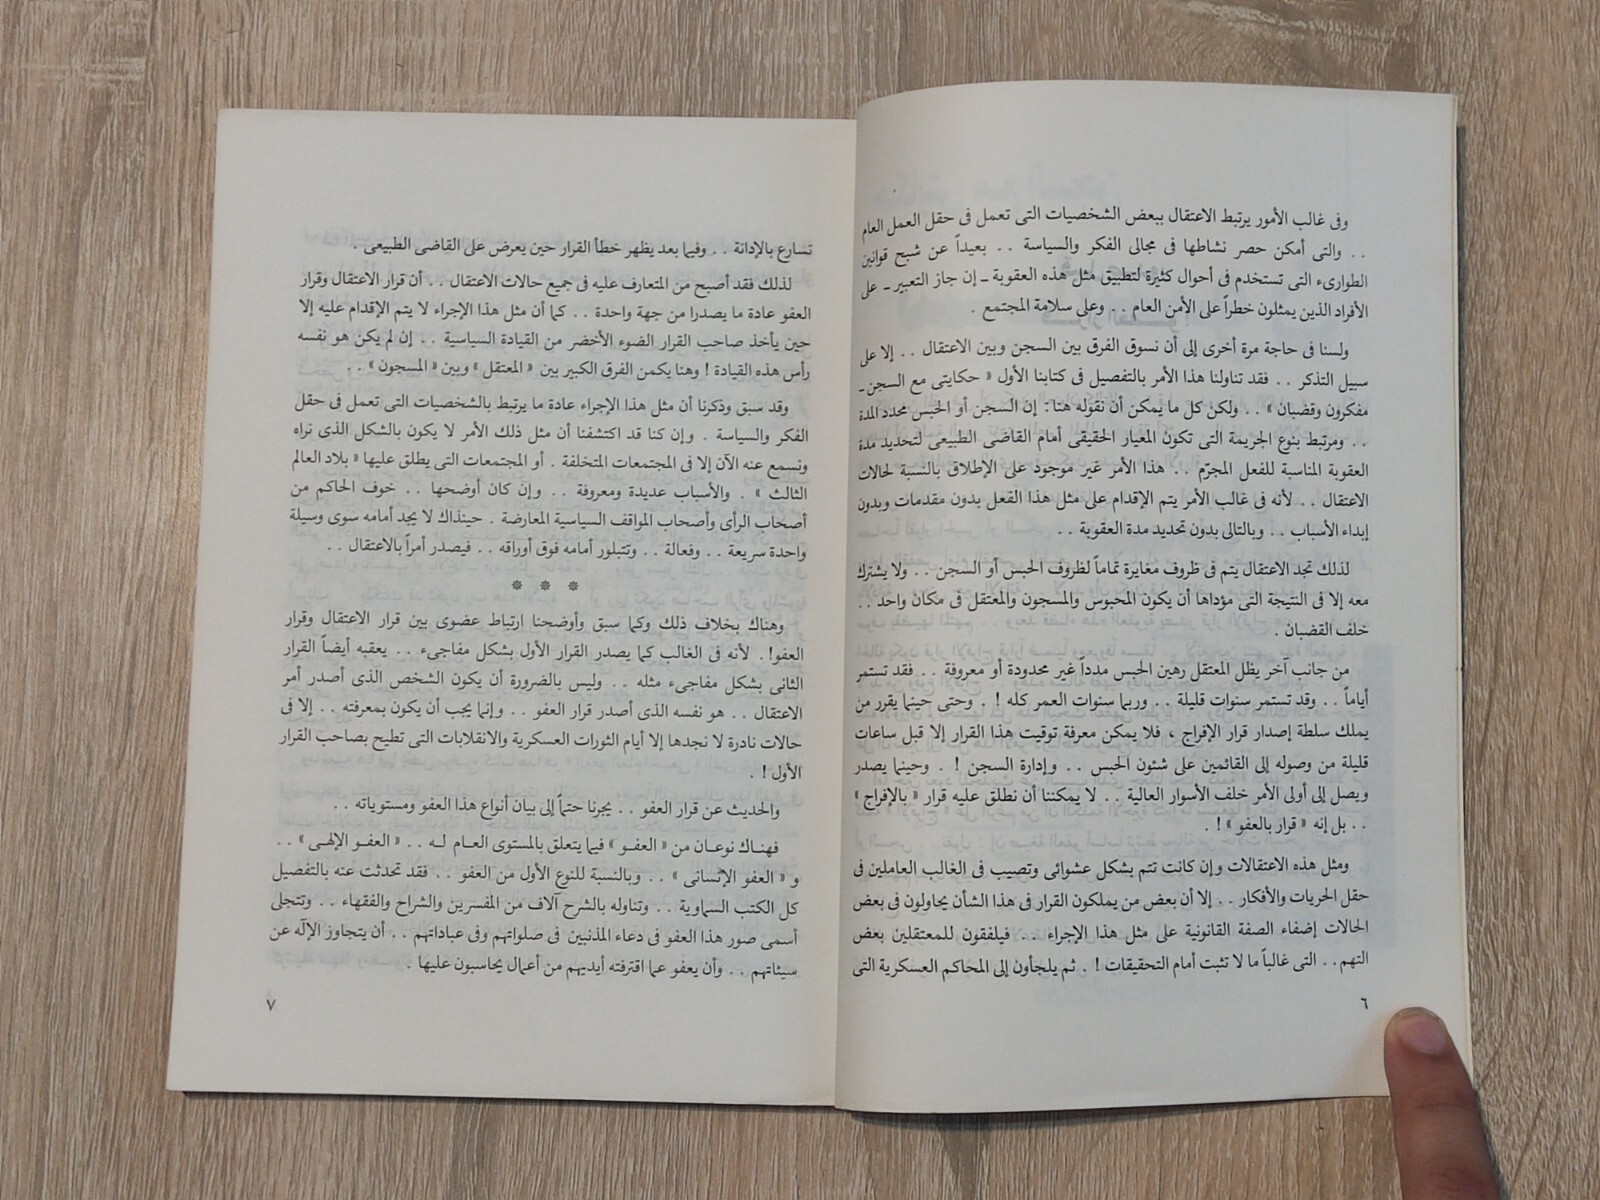 وفى غالب الأمور يرتبط الاعتقال ببعض الشخصيات التى تعمل فى حقل العمل العام
. . والتى أمكن حصر نشاطها فى مجالى الفكر والسياسة . . بعيداً عن شبح قوانين
الطوارىء التى تستخدم فى أحوال كثيرة لتطبيق مثل هذه العقوبة ــ إن جاز التعبير ــ على
الأفراد الذين يمثلون خطراً على الأمن العام . . وعلى سلامة المجتمع .
ولسنا فى حاجة مرة أخرى إلى أن نسوق الفرق بين السجن وبين الاعتقال . . إلا على
سبيل التذكر . . فقد تناولنا هذا الأمر بالتفصيل فى كتابنا الأول « حكايتى مع السجن ــ
مفكرون وقضبان » . . ولكن كل ما يمكن أن نقوله هنا : إن السجن أو الحبس محدد المدة
. . ومرتبط بنوع الجريمة التى تكون المعيار الحقيقى أمام القاضى الطبيعى لتحديد مدة
العقوبة المناسبة للفعل المجرّم . . هذا الأمر غير موجود على الإطلاق بالنسبة لحالات
الاعتقال . . لأنه فى غالب الأمر يتم الإقدام على مثل هذا الفعل بدون مقدمات وبدون
إبداء الأسباب . . وبالتالى بدون تحديد مدة العقوبة . .
لذلك تجد الاعتقال يتم فى ظروف مغايرة تماماً لظروف الحبس أو السجن . . ولا يشترك
معه إلا فى النتيجة التى مؤداها أن يكون المحبوس والمسجون والمعتقل فى مكان واحد . .
خلف القضبان .
من جانب آخر يظل المعتقل رهين الحبس مدداً غير محدودة أو معروفة . . فقد تستمر
أياماً . . وقد تستمر سنوات قليلة . . وربما سنوات العمر كله ! . وحتى حينما يقرر من
يملك سلطة إصدار قرار الإفراج ، فلا يمكن معرفة توقيت هذا القرار إلا قبل ساعات
قليلة من وصوله إلى القائمين على شئون الحبس . . وإدارة السجن ! . وحينما يصدر
ويصل إلى أولى الأمر خلف الأسوار العالية . . لا يمكننا أن نطلق عليه قرار « بالإفراج »
. . بل إنه « قرار بالعفو » ! .
ومثل هذه الاعتقالات وإن كانت تتم بشكل عشوائى وتصيب فى الغالب العاملين فى
حقل الحريات والأفكار . . إلا أن بعض من يملكون القرار فى هذا الشأن يحاولون فى بعض
الحالات إضفاء الصفة القانونية على مثل هذا الإجراء . . فيلفقون للمعتقلين بعض
التهم . . التى غالباً ما لا تثبت أمام التحقيقات ! . ثم يلجأون إلى المحاكم العسكرية التى
٦
تسارع بالإدانة . . وفيما بعد يظهر خطأ القرار حين يعرض على القاضى الطبيعى .
لذلك فقد أصبح من المتعارف عليه فى جميع حالات الاعتقال . . أن قرار الاعتقال وقرار
العفو عادة ما يصدرا من جهة واحدة . . كما أن مثل هذا الإجراء لا يتم الإقدام عليه إلا
حين يأخذ صاحب القرار الضوء الأخضر من القيادة السياسية . . إن لم يكن هو نفسه
رأس هذه القيادة ! وهنا يكمن الفرق الكبير بين « المعتقل » وبين « المسجون » . .
وقد سبق وذكرنا أن مثل هذا الإجراء عادة ما يرتبط بالشخصيات التى تعمل فى حقل
الفكر والسياسة . وإن كنا قد اكتشفنا أن مثل ذلك الأمر لا يكون بالشكل الذى نراه
ونسمع عنه الآن إلا فى المجتمعات المتخلفة . أو المجتمعات التى يطلق عليها « بلاد العالم
الثالث » . والأسباب عديدة ومعروفة . . وإن كان أوضحها . . خوف الحاكم من
أصحاب الرأى وأصحاب المواقف السياسية المعارضة . حينذاك لا يجد أمامه سوى وسيلة
واحدة سريعة . . وفعالة . . وتتبلور أمامه فوق أوراقه . . فيصدر أمراً بالاعتقال . .
* * *
وهناك بخلاف ذلك وكما سبق وأوضحنا ارتباط عضوى بين قرار الاعتقال وقرار
العفو! . لأنه فى الغالب كما يصدر القرار الأول بشكل مفاجىء . . يعقبه أيضاً القرار
الثانى بشكل مفاجىء مثله . . وليس بالضرورة أن يكون الشخص الذى أصدر أمر
الاعتقال . . هو نفسه الذى أصدر قرار العفو . . وإنما يجب أن يكون بمعرفته . . إلا فى
حالات نادرة لا نجدها إلا أيام الثورات العسكرية والانقلابات التى تطيح بصاحب القرار
الأول ! .
والحديث عن قرار العفو . . يجرنا حتماً إلى بيان أنواع هذا العفو ومستوياته . .
فهناك نوعان من « العفو » فيما يتعلق بالمستوى العام له . . « العفو الإلهى » . .
و « العفو الإنسانى » . . وبالنسبة للنوع الأول من العفو . . فقد تحدثت عنه بالتفصيل
كل الكتب السماوية . . وتناوله بالشرح آلاف من المفسرين والشراح والفقهاء . . وتتجلى
أسمى صور هذا العفو فى دعاء المذنبين فى صلواتهم وفى عباداتهم . . أن يتجاوز الإلٓه عن
سيئاتهم . . وأن يعفو عما اقترفته أيديهم من أعمال يحاسبون عليها .
٧